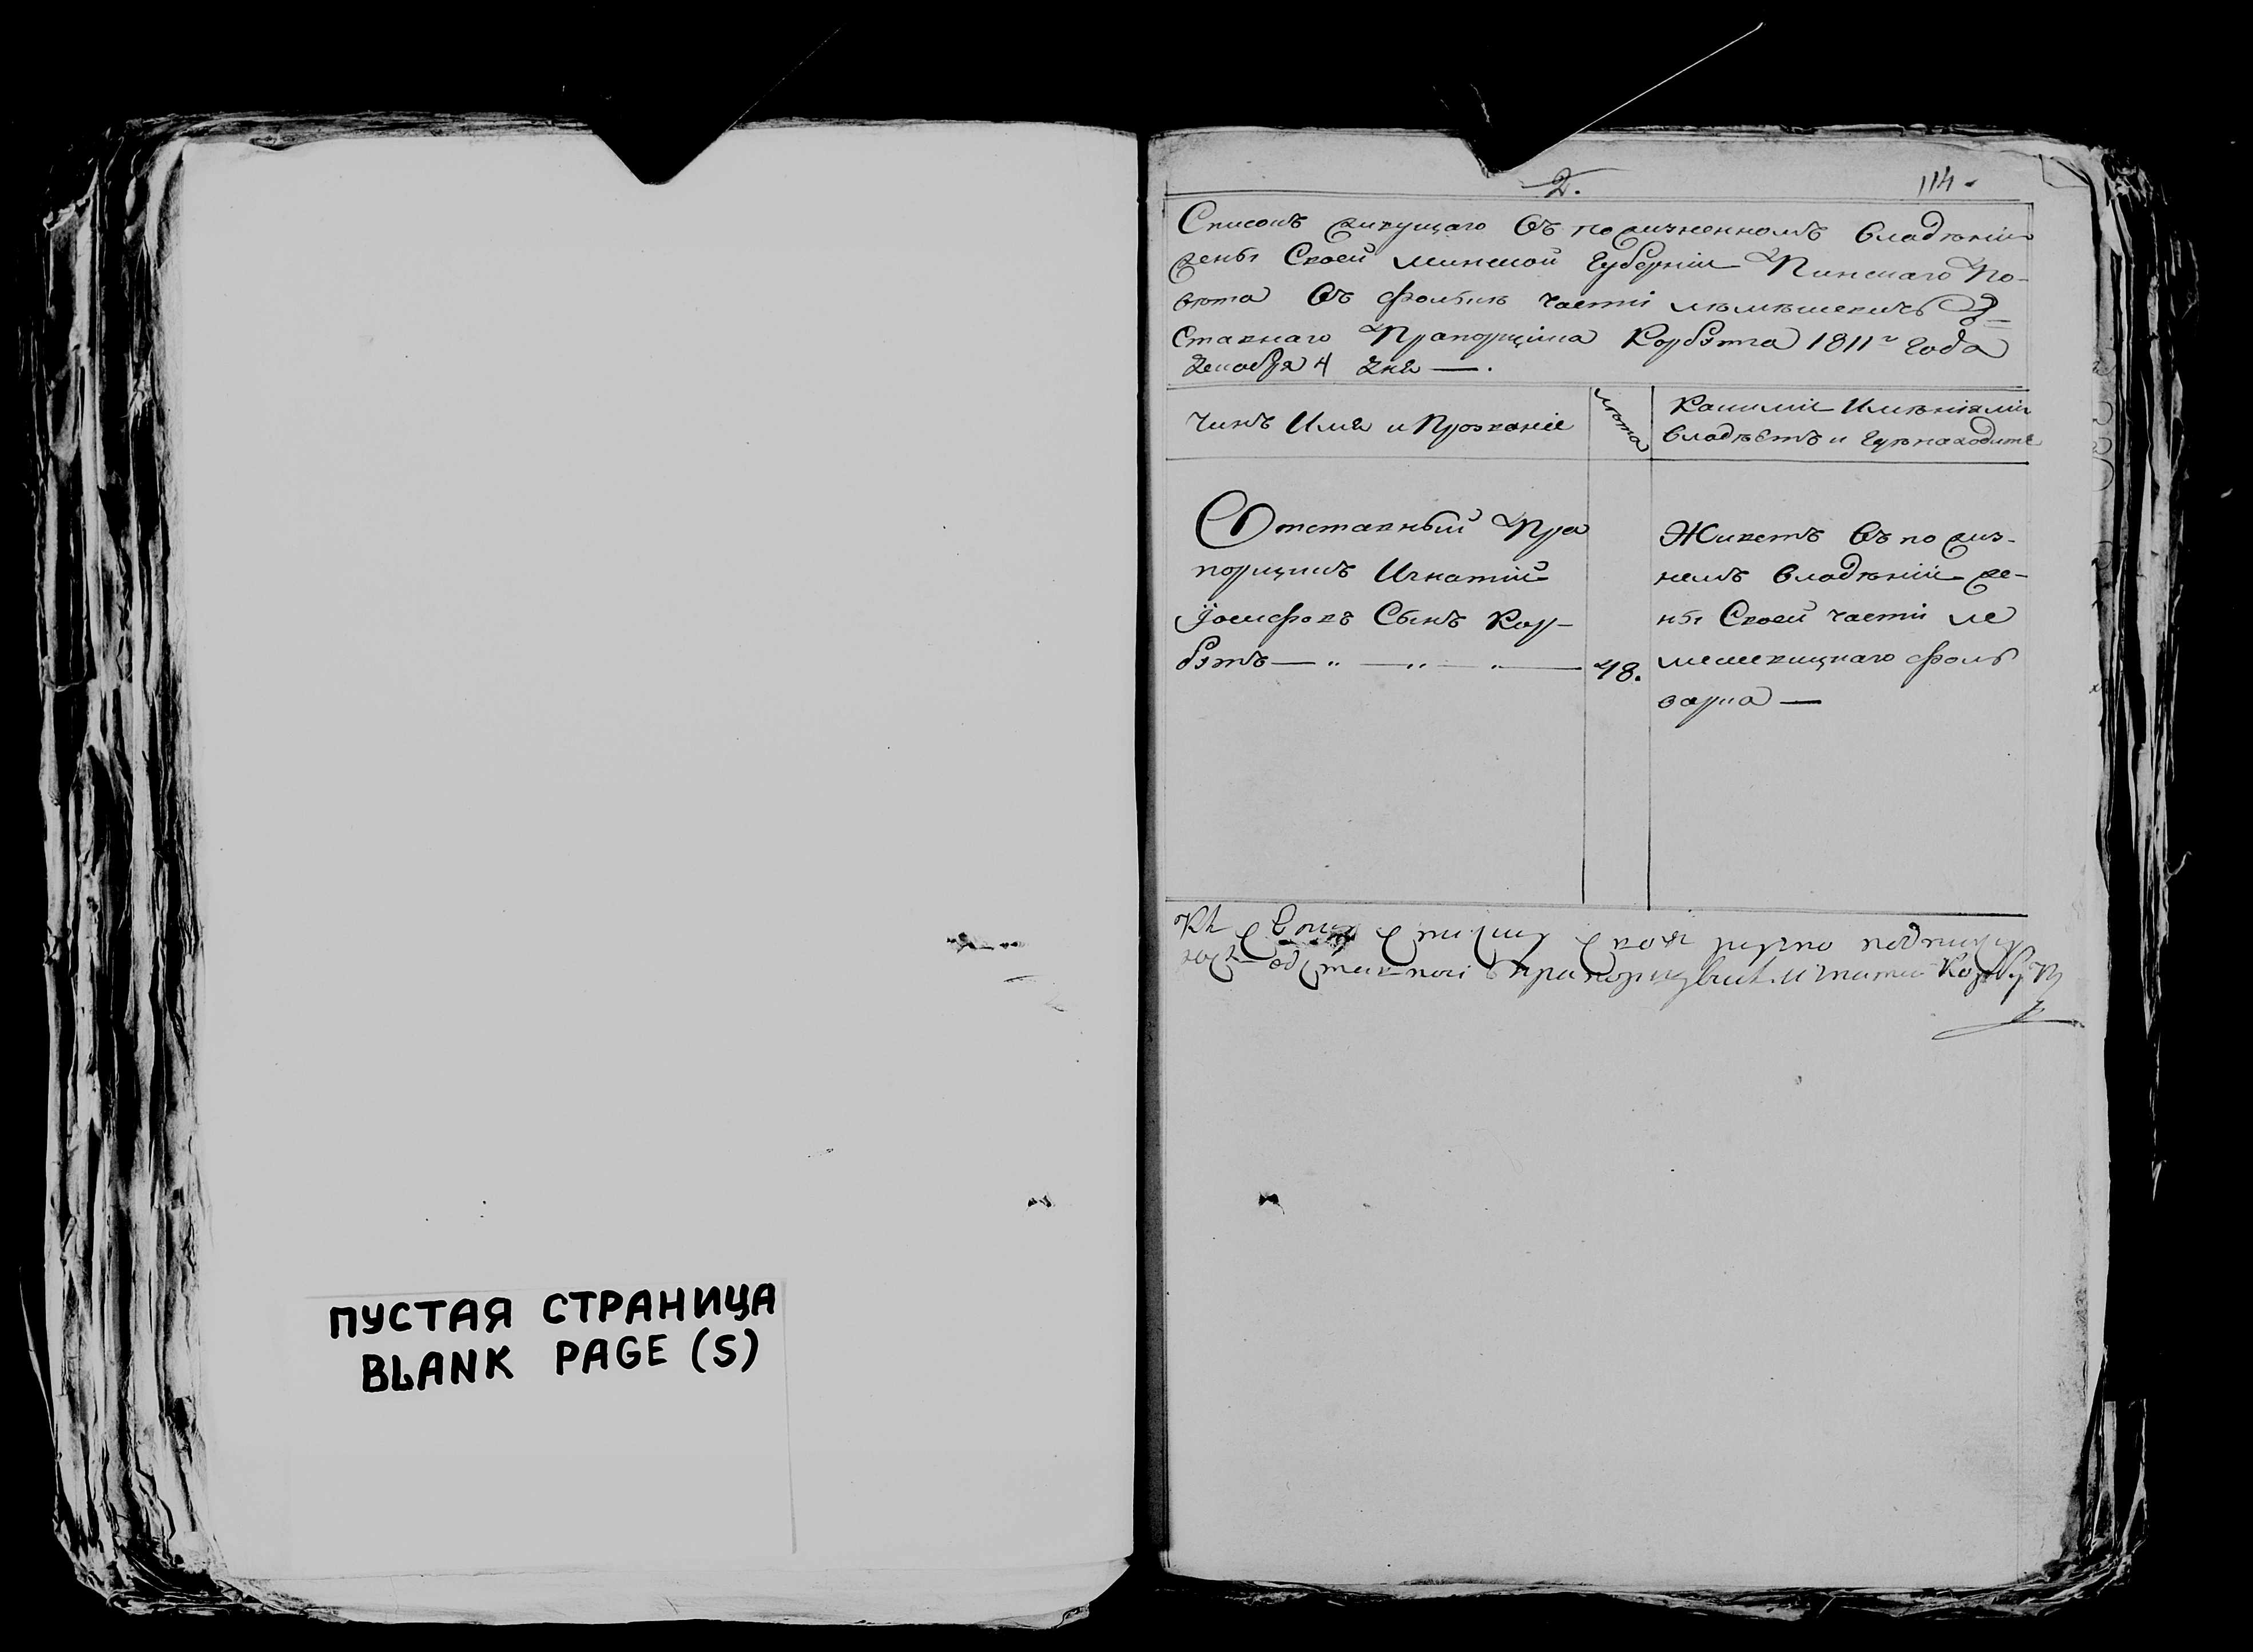 ПУСТАЯ СТРАНИЦА
BLANK PAGE (S)
2.
114.
Списокъ живущаго въ пожизненномъ владѣніи
жены Своей минской Губерніи Пинскаго По-
вѣта въ части От=
Ставнаго Прапорщика Корбута 1811го года
Декабря 4 Дня —.
Чинъ Имя и Прозваніе
лѣта
Какимъ Имѣніямъ
владѣетъ и Гдѣ находитъ
Отставный Пра
порщикъ Игнатій
Іосифовъ Сынъ Кор-
бутъ — „ — „ — „ —
48.
Живетъ въ пожиз-
немъ владѣніи же-
ны Своей части ле
мешевицкаго фоль
варка —
Къ Сему Списку Своя ручно подпису
юсь Прапорщикъ Игнатий Корбут